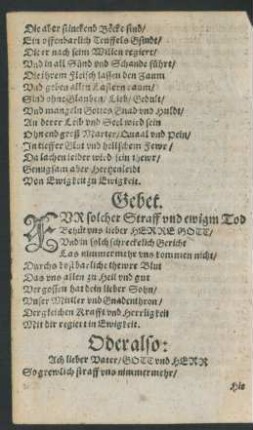 Die aber stinckend Böcke sind/
Ein offenbarlich Teuffels Gsindt/
Die er nach seim Willen regiert/
Vnd in all Sünd vnd Schande führt/
Die ihrem Fleisch lassen den Zaum
Vnd geben allen Lastern raum/
Sind ohne Glauben/ Lieb/ Gedult/
Vnd mangeln Gottes Gnad vnd Huldt/
An derer Leib vnd Seel wird sein
Ohn end groß Marter/ Quaal vnd Pein/
In tieffer Glut vnd hellschem Fewr/
Da lachen leider wird sein thewr/
Gnugsam aber Hertzenleidt
Von Ewigkeit zu Ewigkeit.
Gebet.
FVR solcher Straff vnd ewigm Tod
Behüt vns lieber HERRE GOTT/
Vnd in solch schrecklich Gericht
Las nimmermehr vns kommen nicht/
Durchs kostbarliche thewre Blut
Das vns allen zu Heil vnd gut
Vergossen hat dein lieber Sohn/
Vnser Mittler vnd Gnadenthron/
Der gleichen Krafft vnd Herrligkeit
Mit dir regiert in Ewigkeit.
Oder also:
Ach lieber Vater/ GOTT vnd HERR
So grewlich straff vns nimmermehr/